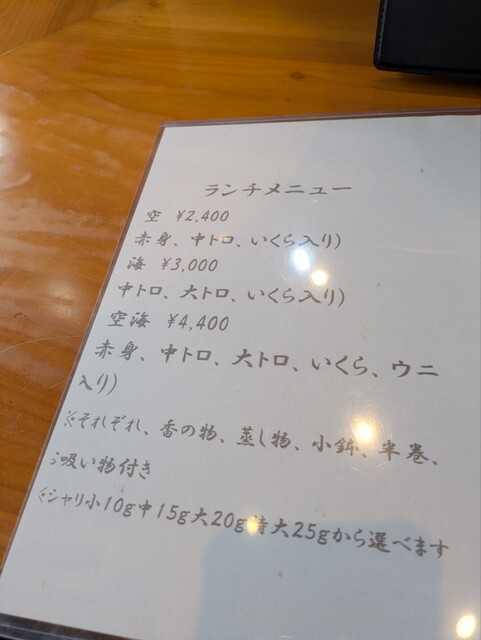 ランチメニュー
空 ¥2,400
赤身、中トロ、いくら入り)
海 ¥3,000
中トロ、大トロ、いくら入り)
空海 ¥4,400
赤身、中トロ、大トロ、いくら、ウニ
入り)
※それぞれ、香の物、蒸し物、小鉢、半巻、
吸い物付き
※シャリ小10g中15g大20g特大25gから選べます